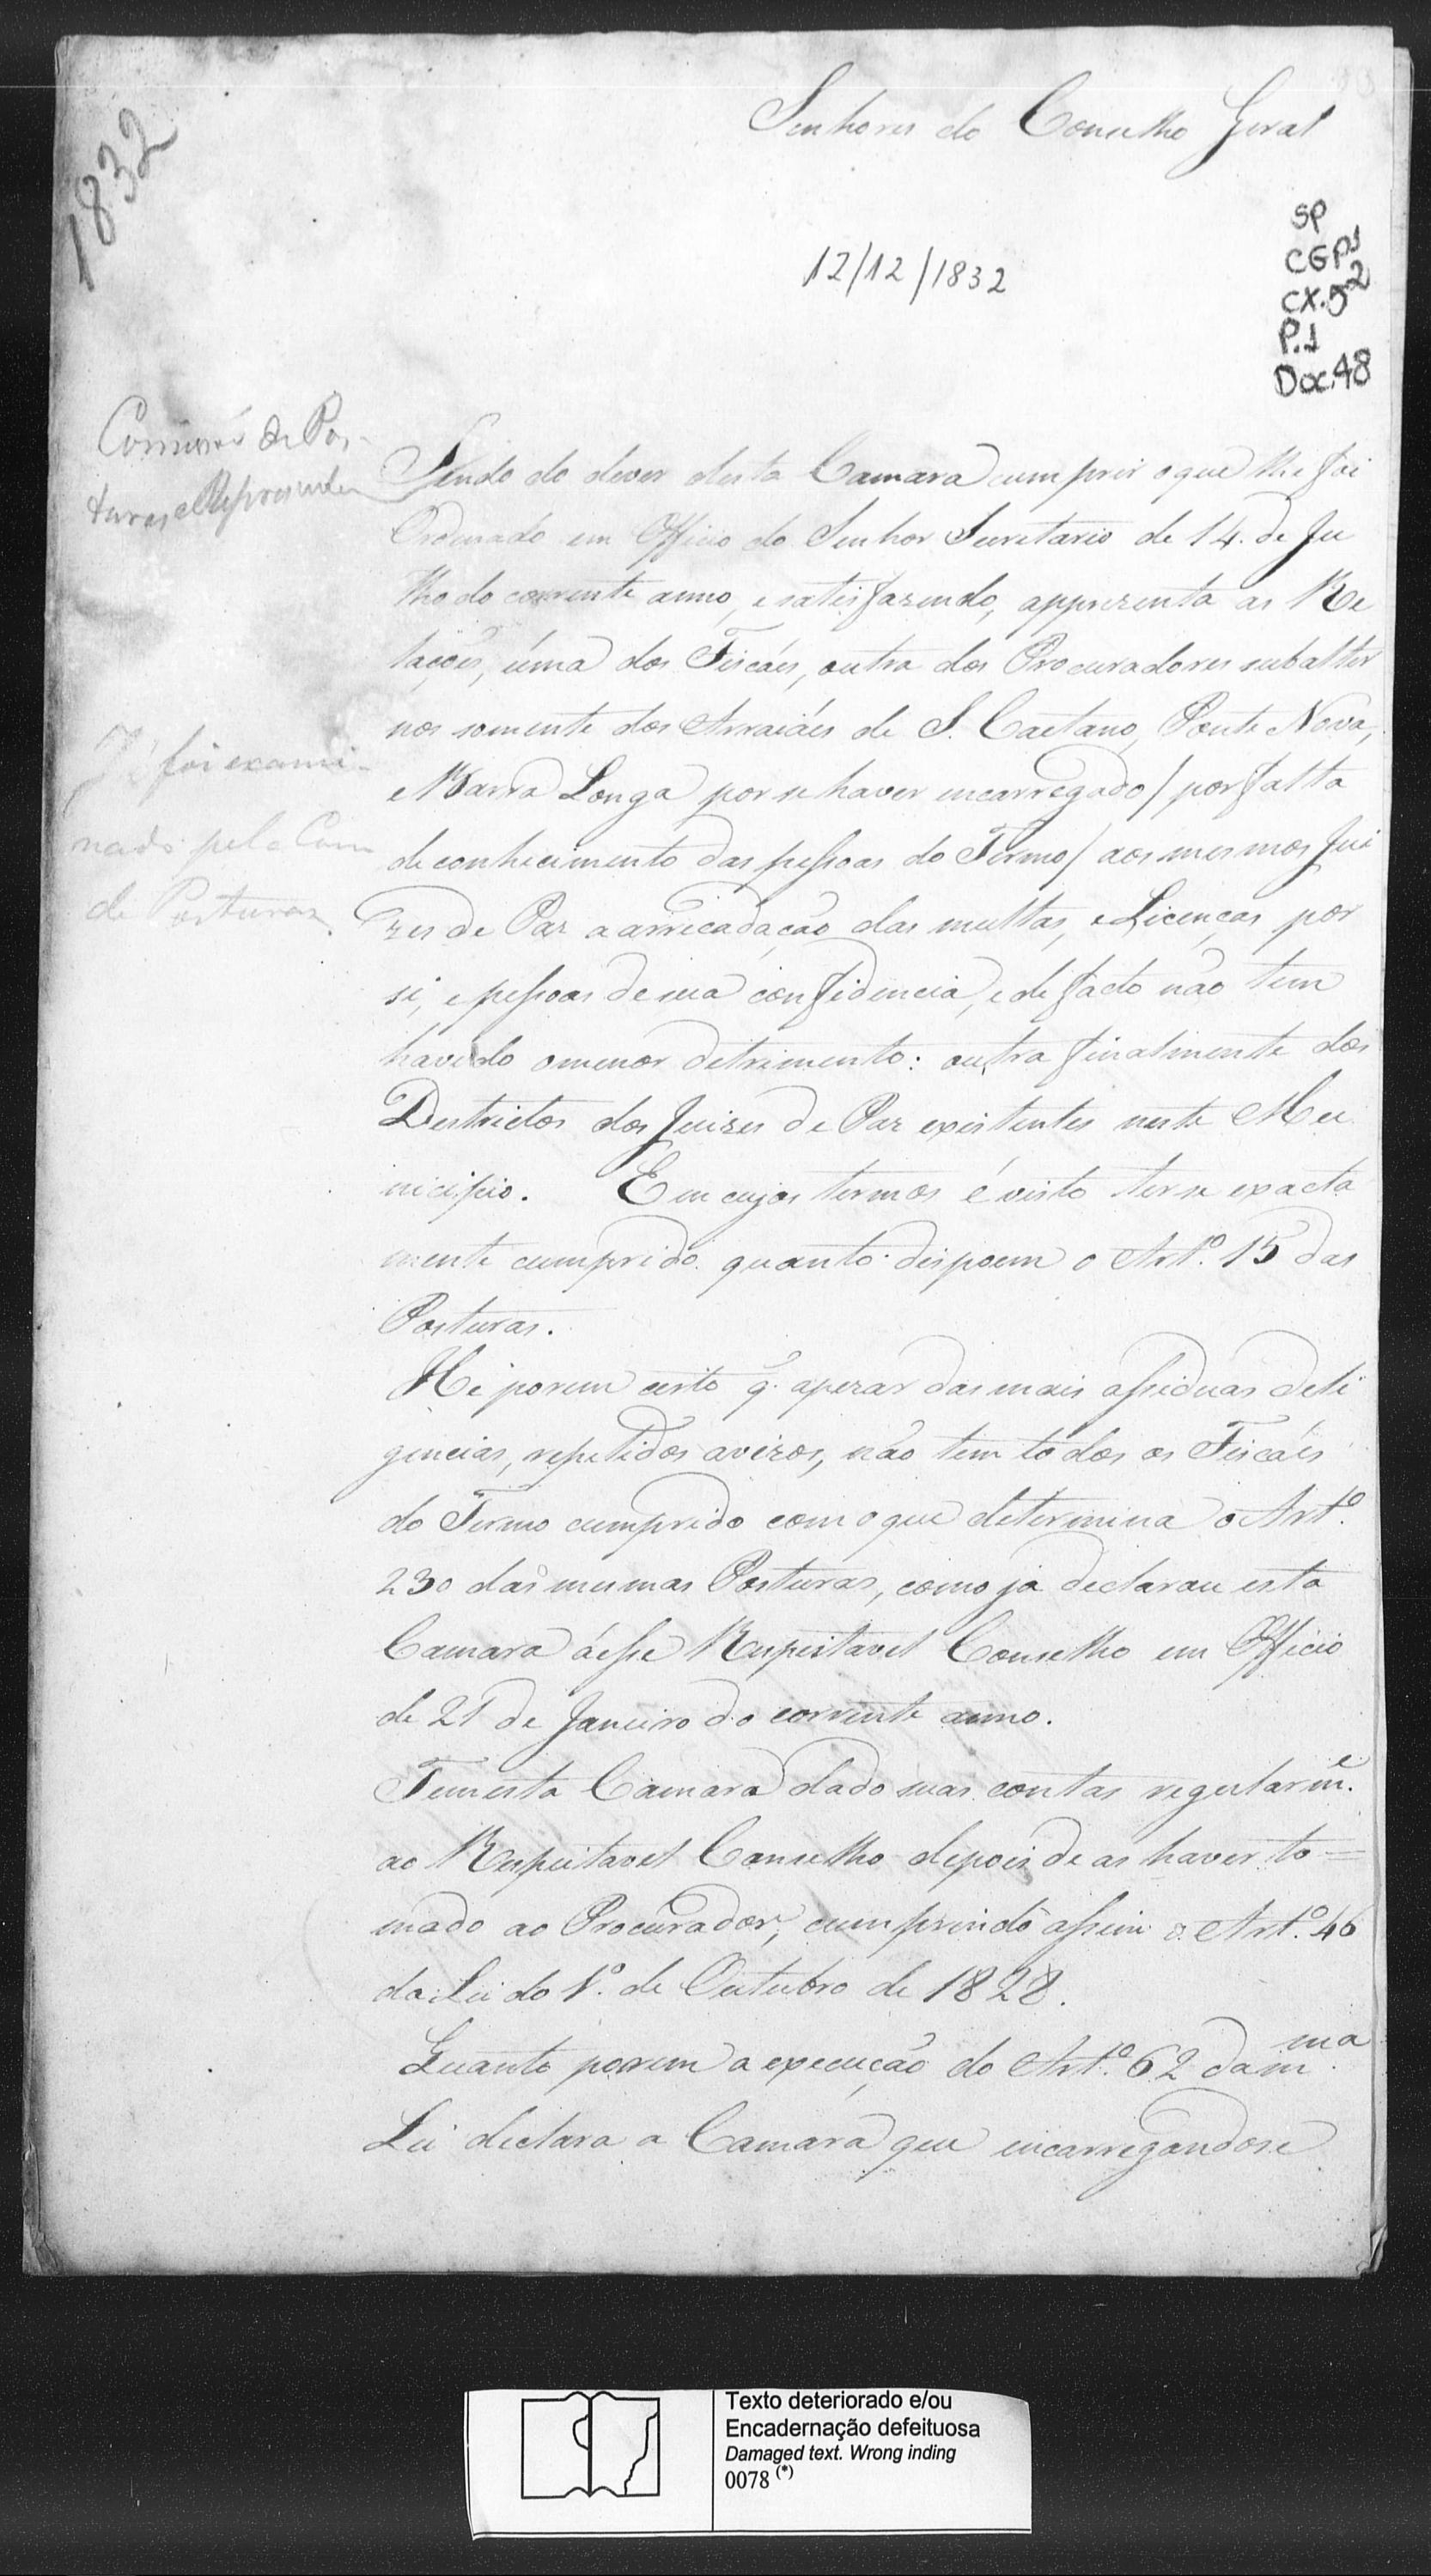 1832
Senhores do Conselho Geral
12/12/1832
SP
CGP1
CX.52
P.1
Doc.48
Commissão de Pos-
turas e Representa
Já foi exami-
nado pela Com
de Posturas
Sendo do dever desta Camara cumprir o que lhe foi
Ordenado em Officio do Senhor Secretario de 14. de Ju
lho do corrente anno, e satisfazendo, apprezenta as Re
lações, úma dos Fiscáes, outra dos Procuradores subalter
nos somente dos Arraiáes de S. Caetano, Ponte Nova,
e Barra Longa por se haver encarregado / por falta
de conhecimento das pessoas do Termo / aos mesmos Jui
zes de Paz a arrecadação das multas, e Licenças por
si, e pessoas de sua confidencia, e de facto não tem
havido o menor detrimento: outra finalmente dos
Destrictos dos Juizes de Paz existentes neste Mu
nicipio. Em cujos termos é visto ter se exacta
mente cumprido quanto dispoem o Artº. 15 das
Posturas.
He porem certo q. apezar das mais assiduas deli
gencias, repetidos avizos, não tem todos os Fiscáes
do Termo cumprido com o que determina o Artº.
230 das mesmas Posturas, como já declarou esta
Camara áesse Respeitavel Conselho em Officio
de 21 de Janeiro do corrente anno.
Tem esta Camara dado suas contas regularmᵉ.
ao Respeitavel Conselho depois de as haver to=
mado ao Procurador, cumprindo assim o Artº. 46
da Lei do 1º. de Outubro de 1828.
Quanto porem a execução do Artº. 62 da mᵐᵃ.
Lei declara a Camara que encarregandose
Texto deteriorado e/ou
Encadernação defeituosa
Damaged text. Wrong inding
0078 (*)